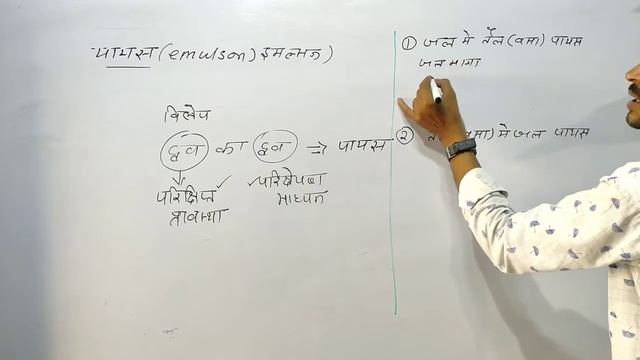 पायस (emulson) इमल्सन)
विलेय
द्रव का द्रव ⇒ पायस
परिक्षिप्त ✓
प्रावस्था
✓परिक्षेपण
माध्यम
① जल मे तेल (वसा) पायस
जल मात्रा
② (वसा) मे जल पायस